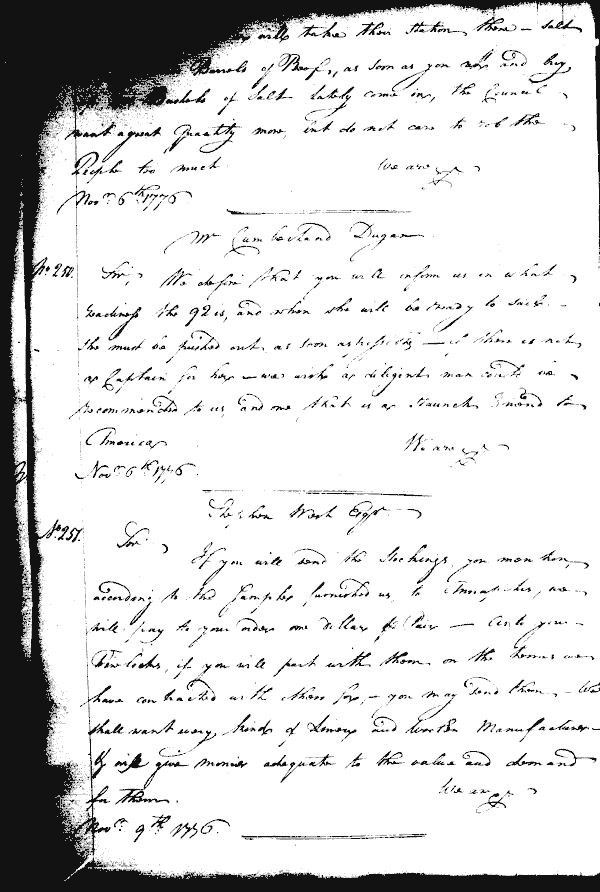 will take their Station there — Salt
Barrels of Beef, as soon as you and buy
Bushels of Salt lately come in, the Council
want a great Quantity more, but do not care to rob the
People too much We are &c
Novr. 6th. 1776
Mr Cumberland Dugan
No. 250. Sir, We desire that you will inform us in what
readiness the is, and when she will be ready to Sail —
She must be pushed out as soon as possible — if there is not
a Captain for her — we wish a diligent man could be
recommended to us, and one that is a staunch Friend to
America We are &c
Novr. 6th. 1776.
Stephen West Esqr.
No. 251. Sir If you will send the Stockings you mention,
according to the Samples furnished us, to Annapolis, we
will pay to your order one dollar Pair — As to your
Firelocks, if you will part with them on the terms we
have contracted with others for, — you may send them — We
shall want every kind of Linen and Woollen Manufactures
& will give monies adequate to the value and demand
for them. We are &c
Novr. 9th. 1776.